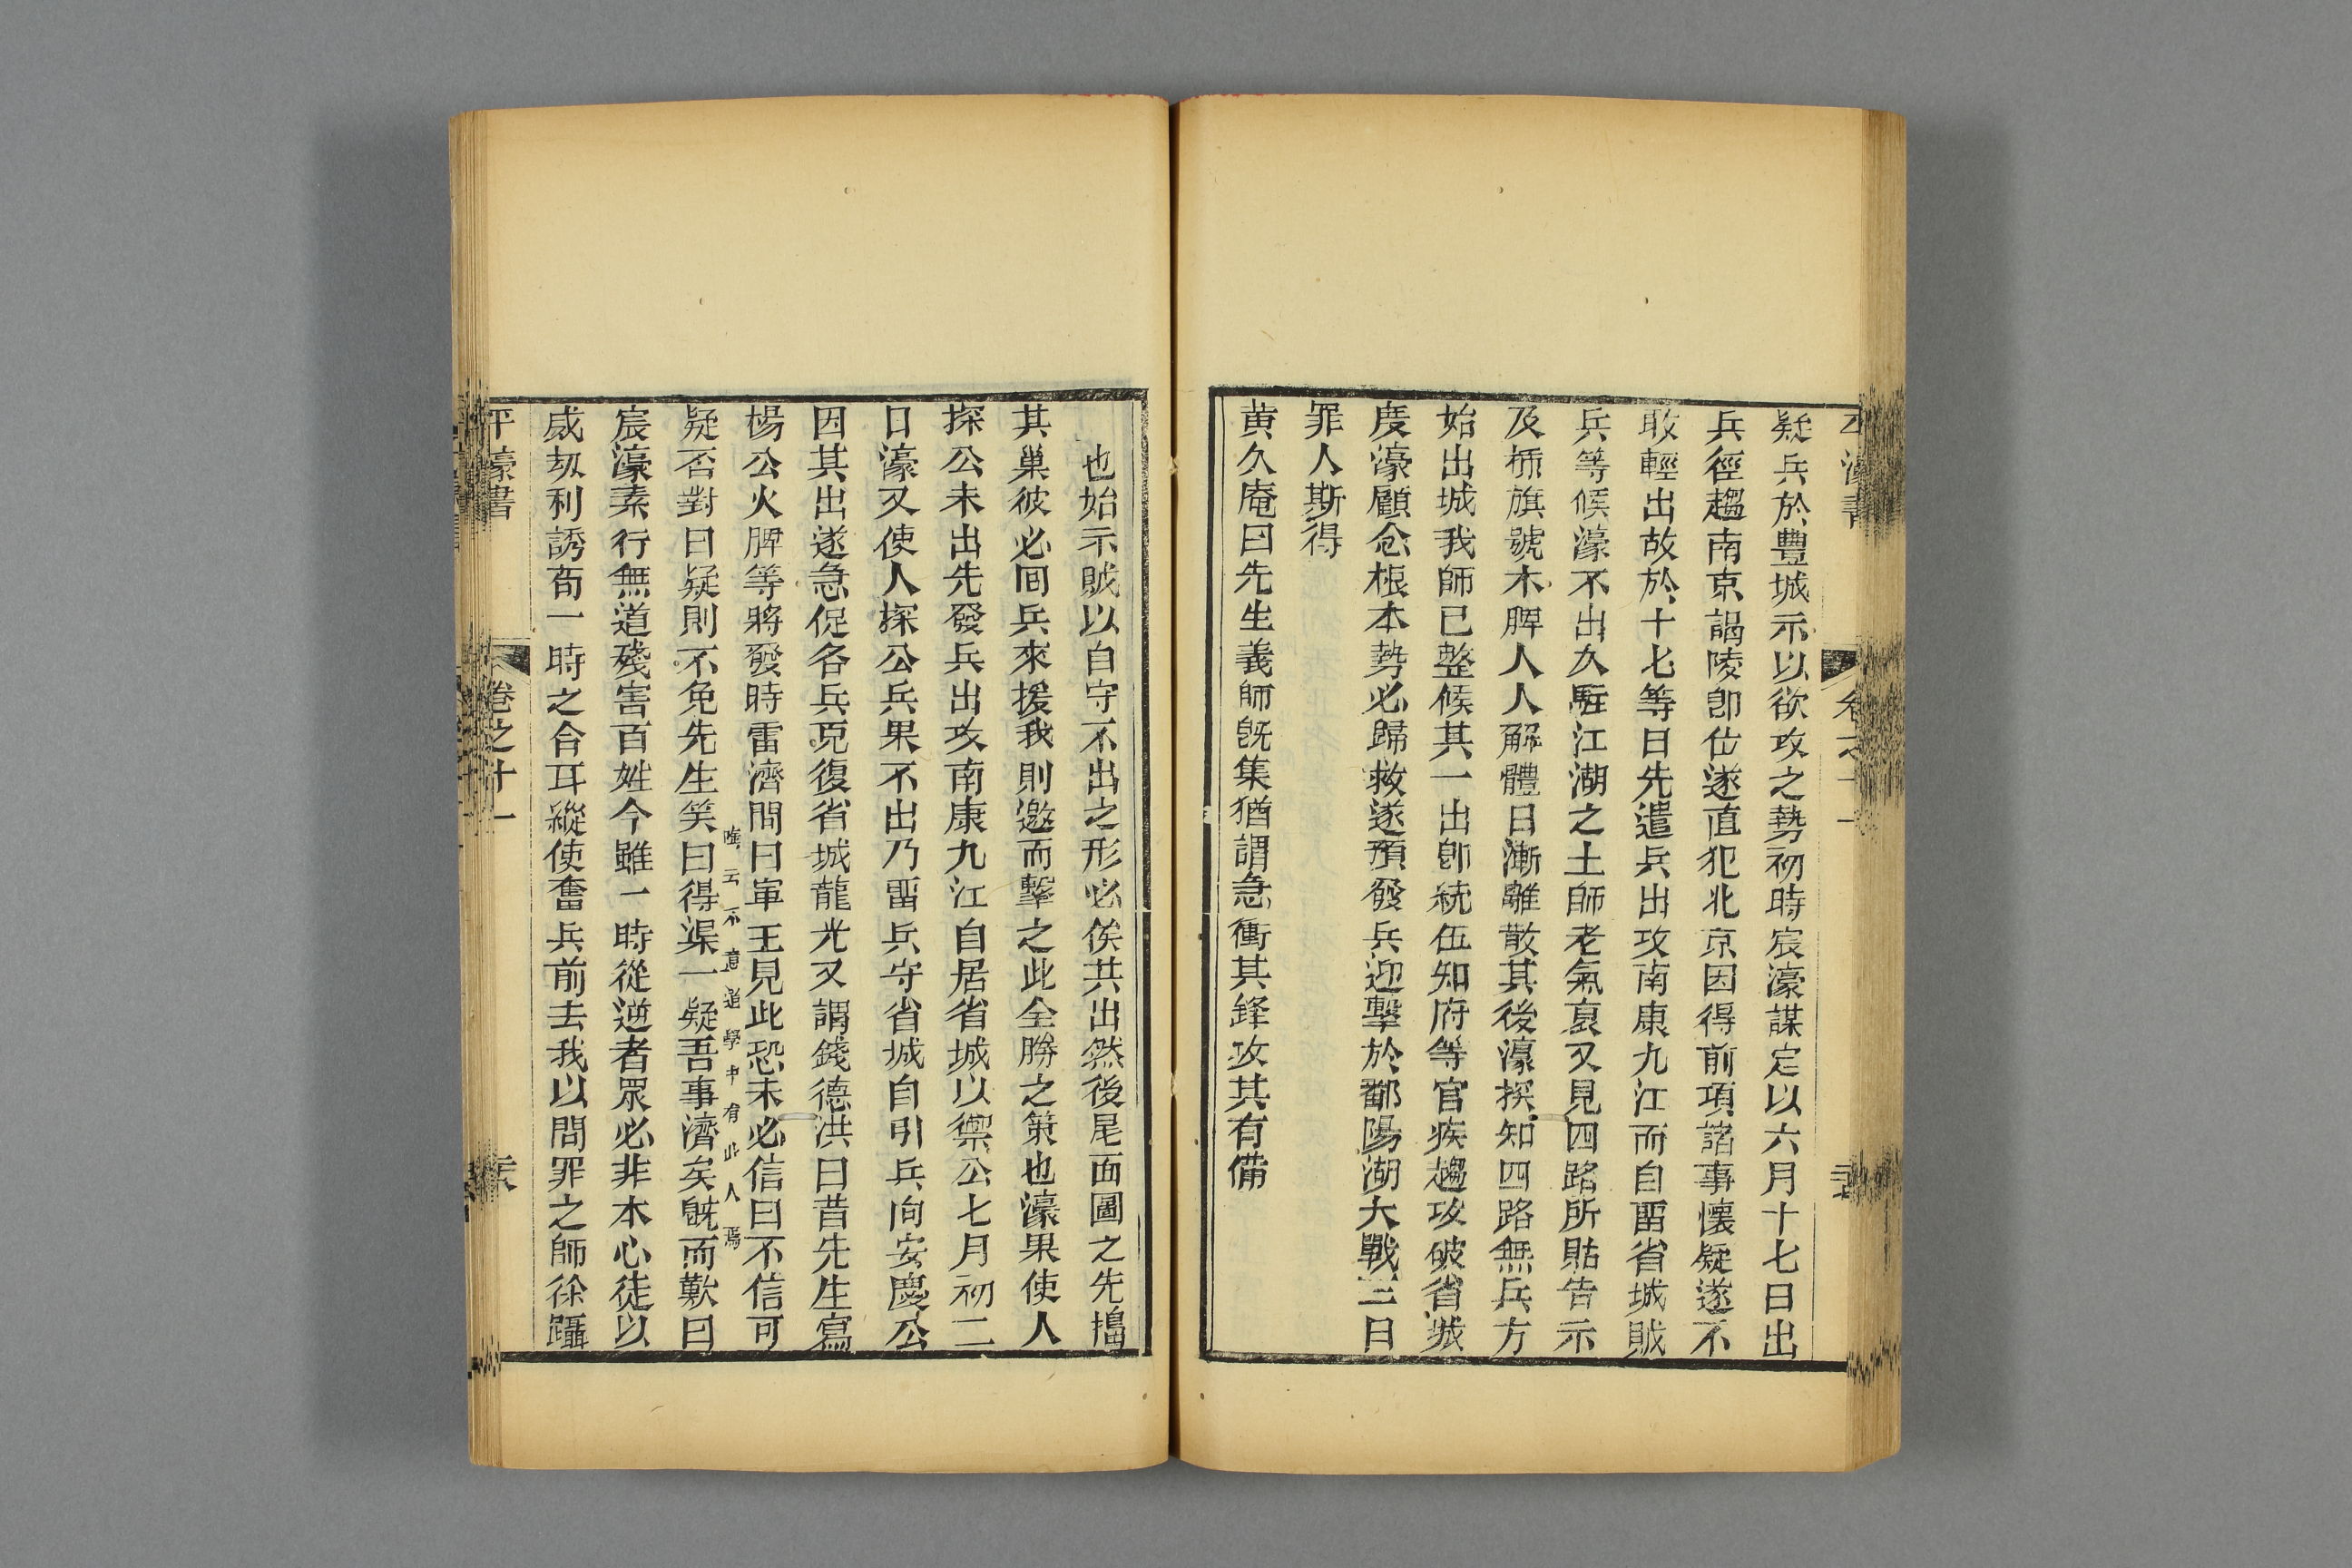 疑兵於豐城示以欲攻之勢初時宸濠謀定以六月十七日出
兵徑趨南京謁陵卽位遂直犯北京因得前項諸事懷疑遂不
敢輕出故於十七等日先遣兵出攻南康九江而自畱省城賊
兵等候濠不出久駐江湖之上師老氣衰又見四路所貼告示
及標旗號木牌人人解體日漸離散其後濠探知四路無兵方
始出城我師已整候其一出卽統伍知府等官疾趨攻破省城
度濠顧念根本勢必歸救遂預發兵迎擊於鄱陽湖大戰三日
罪人斯得
黃久庵曰先生義師旣集猶謂急衝其鋒攻其有備
也始示賊以自守不出之形必俟其出然後尾而圖之先搗
其巢彼必回兵來援我則邀而擊之此全勝之策也濠果使人
探公未出先發兵出攻南康九江自居省城以禦公七月初二
日濠又使人探公兵果不出乃畱兵守省城自引兵向安慶公
因其出遂急促各兵克復省城龍光又謂錢德洪曰昔先生寫
楊公火牌等將發時雷濟問曰寧王見此恐未必信曰不信可
疑否對曰疑則不免先生笑曰得渠一疑吾事濟矣旣而歎曰
唯云不意道學中有此人焉
宸濠素行無道殘害百姓今雖一時從逆者眾必非本心徒以
威刼利誘苟一時之合耳縱使奮兵前去我以問罪之師徐躡
平濠書
卷之十一